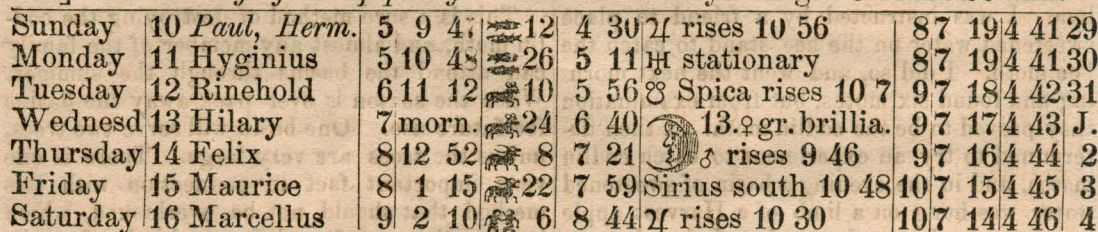 Sunday 10 Paul, Herm. 5 9 4 12 4 30 ♃ rises 10 56 8 7 19 4 41 29
Monday 11 Hyginius 5 10 48 26 5 11 ♅ stationary 8 7 19 4 41 30
Tuesday 12 Rinehold 6 11 12 10 5 56 ☋ Spica rises 10 7 9 7 18 4 42 31
Wednesd 13 Hilary 7 morn. 24 6 40 13. ♀ gr. brillia. 9 7 17 4 43 J.
Thursday 14 Felix 8 12 52 8 7 21 ♂ rises 9 46 9 7 16 4 44 2
Friday 15 Maurice 8 1 15 22 7 59 Sirius south 10 48 10 7 15 4 45 3
Saturday 16 Marcellus 9 2 10 6 8 44 ♃ rises 10 30 10 7 14 4 46 4